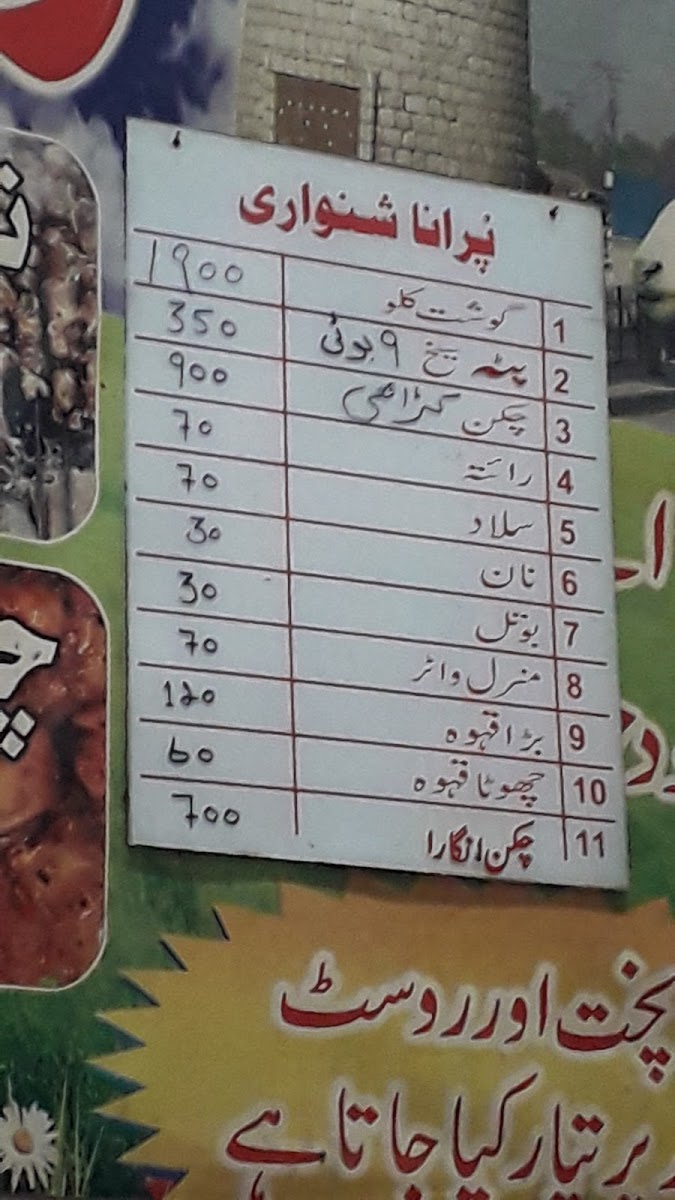 پرانا شنواری
1 گوشت کلو 1900
2 پٹہ سیخ ۹ بوٹی 350
3 چکن کڑاھی 900
4 رائتہ 70
5 سلاد 70
6 نان 30
7 بوتل 30
8 منرل واٹر 70
9 بڑا قہوہ 120
10 چھوٹا قہوہ 60
11 چکن انگارا 700
پخت اور روسٹ
پر تیار کیا جاتا ہے